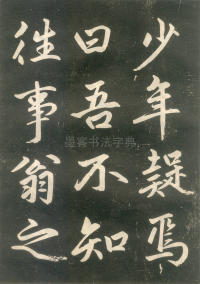 少年疑焉
曰吾不知
往事翁之
书法字典